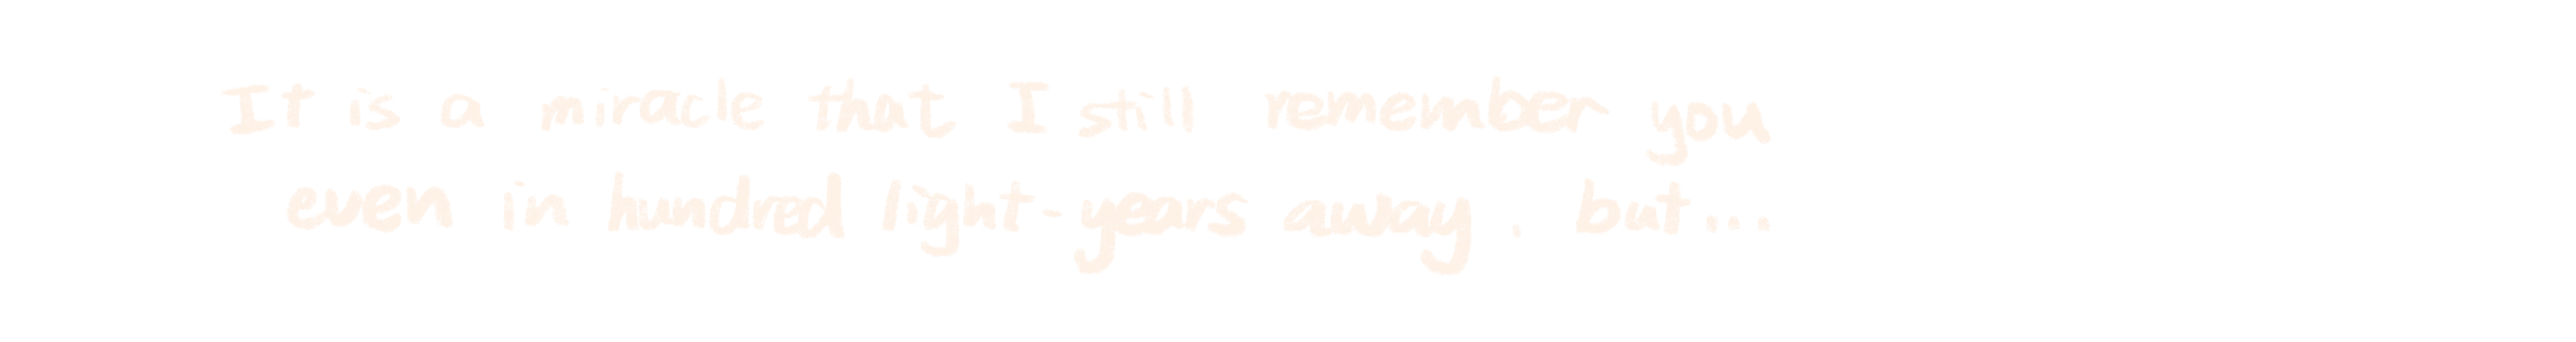 It is a miracle that I still remember you
even in hundred light-years away. but...